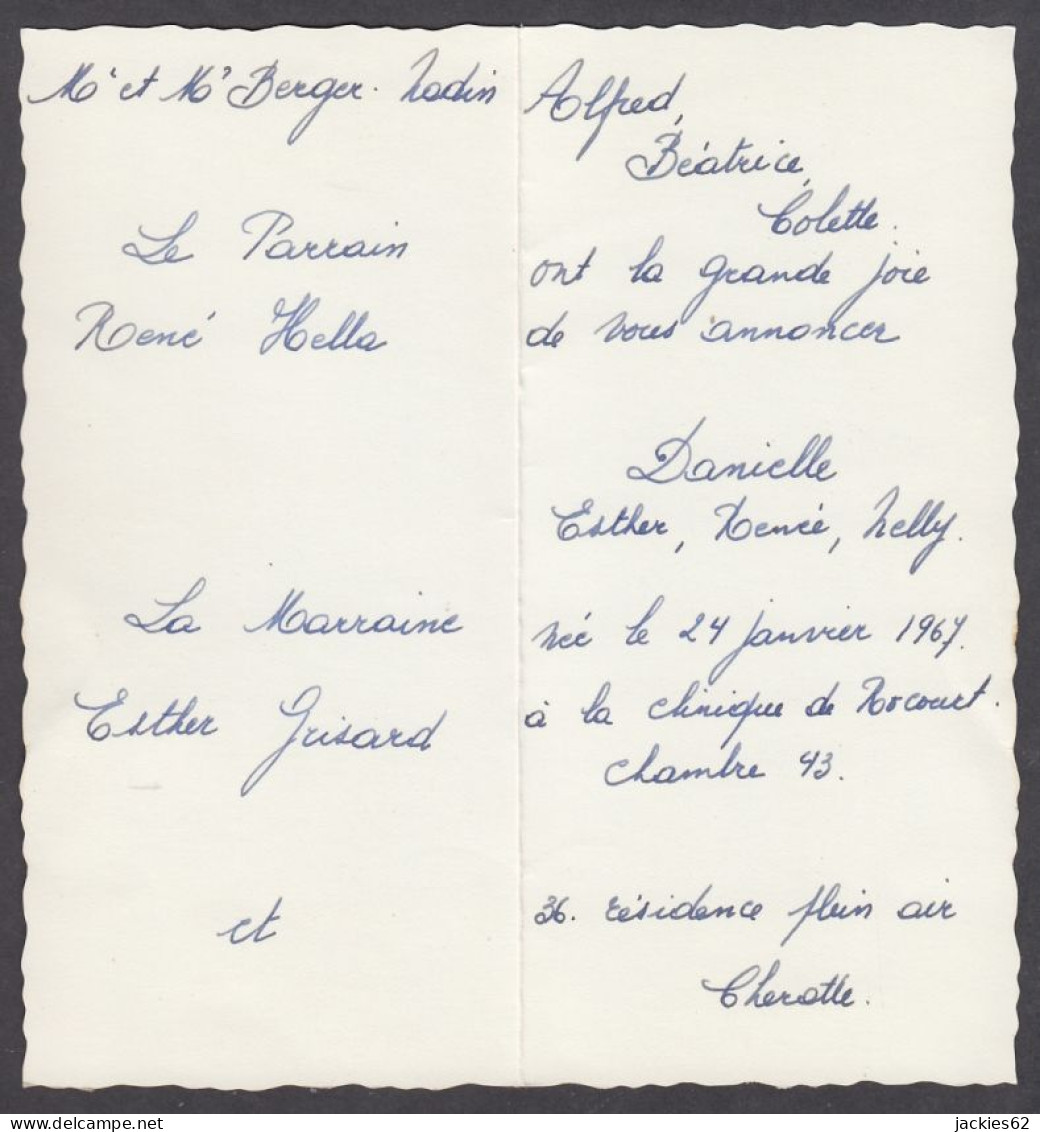 Mr et Me Berger. Nadin
Le Parrain
René Hella
La Marraine
Esther Grisard
et
Alfred,
Béatrice,
Colette.
ont la grande joie
de vous annoncer
Danielle
Esther, Renée, Nelly.
née le 24 janvier 1967.
à la clinique de Rocourt.
chambre 43.
36. résidence plein air
Cheratte.
jackies62